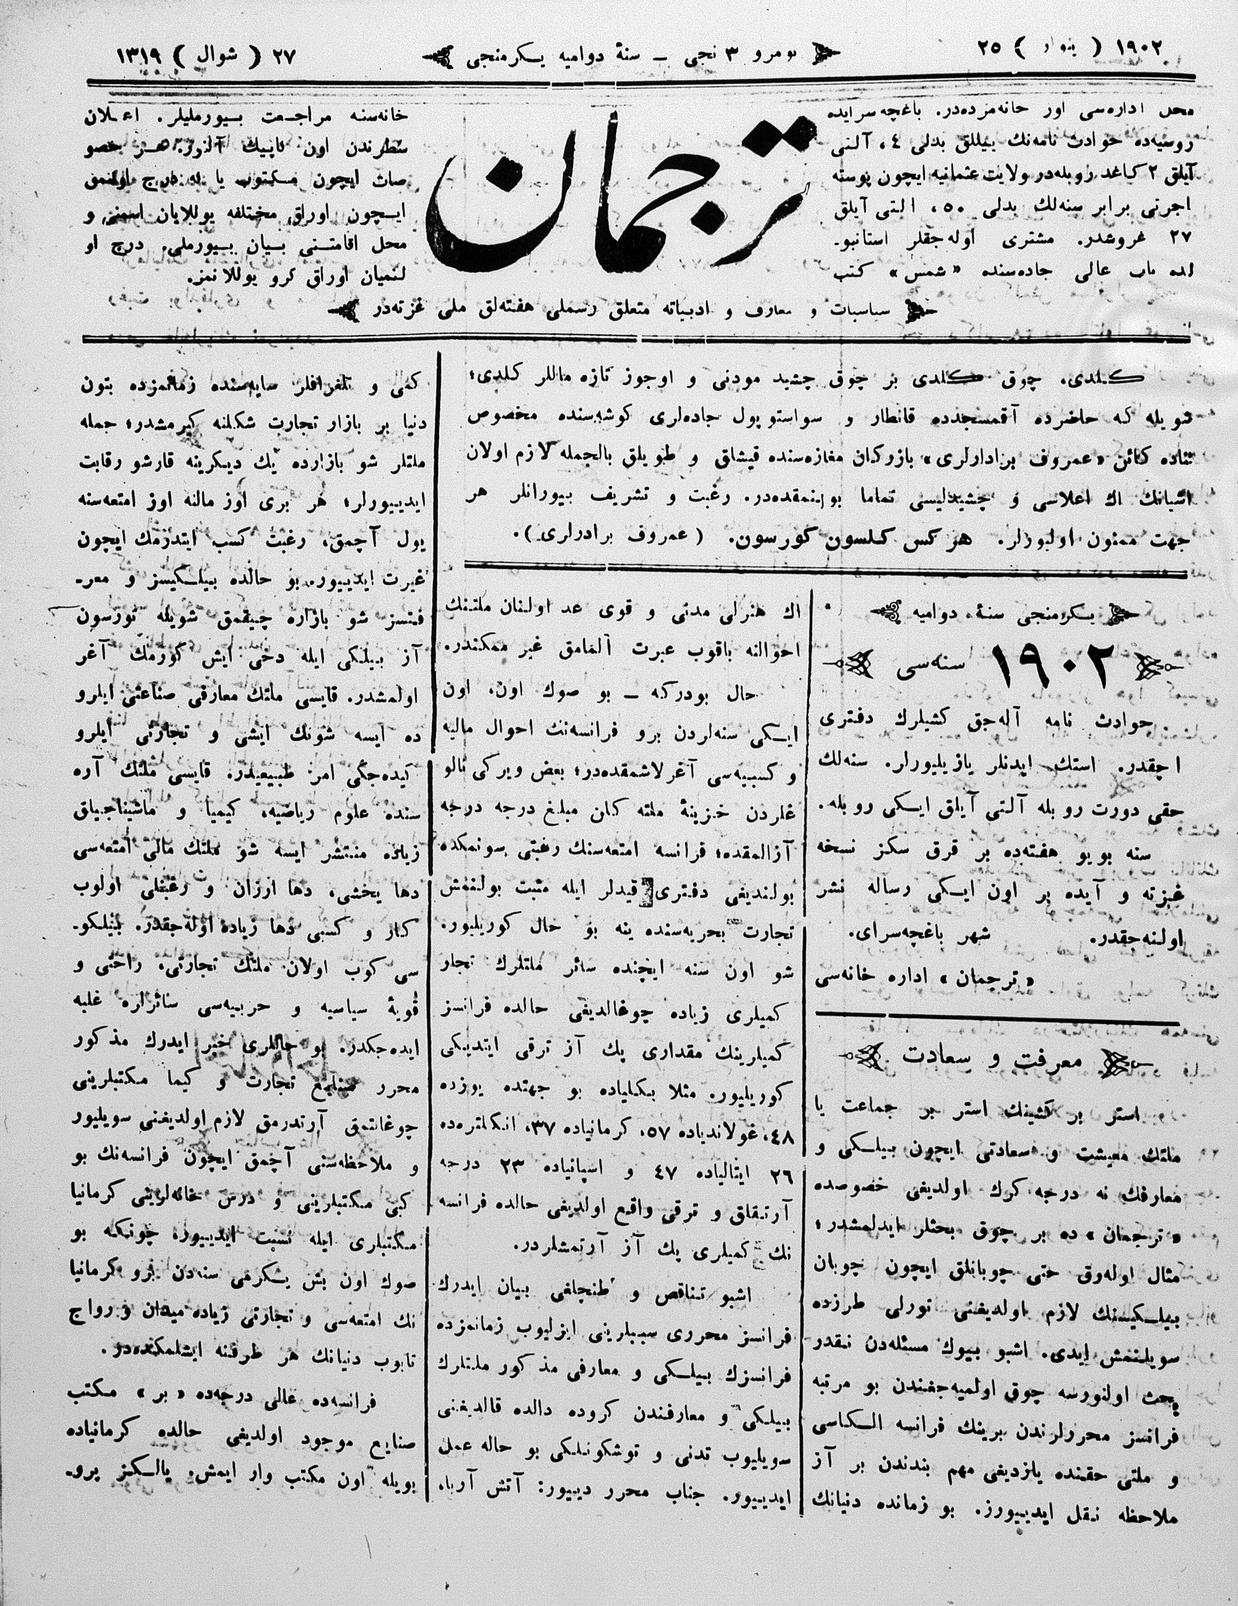 ١٩٠٢ ( ینوار ) ٢٥
نومرو ٣ نجی ـ سنۀ دوامیه یـكرمنجی
٢٧ ( شوال ) ١٣١٩
محل اداره‌سی اور خانه‌مزده‌در. باغچه‌سرایده
روسیه‌ده حوادث نامه‌نك ییللق بدلی ٤، آلتی
آیلق ٢ كاغد روبله‌در ولایت عثمانیه ایچون پوسته
اجرتی برابر سنه‌لك بدلی ٥٠، التی آیلق
٢٧ غروشدر. مشتری اوله‌جقلر استانبو۔
لده باب عالی جاده‌سنده «شمس» كتب
ترجمان
خانه‌سنه مراجـعت بـیورملیلر. اعـلان
سطرندن اون كاپیك آلنور. هـر خصو
صات ایچون مـكتوب یا
ایـچون اوراق مختلفه یوللایان اسمنی و
محل اقامتـنی بـیان بـیورملی. درج او
لنمیان اوراق كرو یوللانمز.
سیاسیات و معارف و ادبیاته متعلق رسملی هفته‌لق ملی غزته‌در
كـلدی. چوق كـلدی بر چوق چشید مودنی و اوجوز تازه ماللر كلدی؛
شویله كه حاضرده آقمسجدده قانطار و سواستوپول جاده‌لری كوشه‌سنده مخصوص
كائن «عمروف برادارلری» بازركان مغازه‌سنده قیشلق و طویلق بالجمله لازم اولان
اشیانك اك اعلاسی و چشیدلیسی تماما بولنمقده‌در. رغبت و تشریف بیورانلر هر
جهت ممنون اولیورلر. هر كس كـلسون كورسون. ( عمروف برادرلری ).
یـكرمنجی سنۀ دوامیه
١٩٠٢ سنه‌سی
حوادث نامه آله‌جق كشیلرك دفتری
اچقدر. استك ایدنلر یازیلیورلر. سنه‌لك
حقی دورت روبله آلتی آیلق ایـكی روبله.
سنه بویو هفته‌ده بر قرق سكز نسخه
غزته و آیده بر اون ایـكی رساله نشر
اولنه‌جقدر. شهر باغچه‌سرای.
«ترجمان» اداره خانه‌سی
معرفت و سعادت
استر بر كشینك استر بر جماعت یا
ملتك معیشت و سعادتی ایچون بیلـكی و
معارفك نه درجه كرك اولدیغی خصوصده
«ترجمان» ده بر چوق بحثلر ایدلمشدر؛
مثال اوله‌رق حتی چوبانلق ایچون چوبان
بیلـكیسنك لازم اولدیغنی تورلی طرزده
سویلـنمش ایدی. اشبو بیوك مسئله‌دن نـقدر
بحث اولنورسه چوق اولمیه‌جغندن بو مرتبه
فرانسز محررلرندن برینك فرانسه الـكاسی
و ملتی حقنده یازدیغی مهم بندندن بر آز
ملاحظه نـقل ایدیـیورز. بو زمانده دنیانك
اك هنرلی مدنی و قوی عد اولـنان ملتـنك
احوالنه باقوب عبرت آلمامق غیر ممكندر.
حال بودركه ـ بو صوك اون، اون
ایـكی سنه‌لردن برو فرانسه‌نك احوال مالیه
و كسبیه‌سی آغرلاشمقده‌در؛ بعض ویركی نالو
غلردن خزینۀ ملته كلن مبلغ درجه درجه
آزالمقده؛ فرانسه امتعه‌سنك رغبتی سونمكده
بولندیغی دفتری قیدلر ایله مثبت بولنمش
تجارت بحریه‌سنده ینه بو حال كوریلیور.
شو اون سنه ایچنده سائر ملتلرك تجار
كمیلری زیاده چوغالدیغی حالده فرانسز
كمیلرینك مقداری پك آز ترقی ایتدیـكی
كوریلیور. مثلا بـكلیاده بو جهتده یوزده
٤٨، غولاندیاده ٥٧، كرمانیاده ٣٧، انـكلتره‌ده
٢٦ ایتالیاده ٤٧ و اسپانیاده ٢٣ درجه
آرتیقلق و ترقی واقع اولدیغی حالده فرانسه
نك كمیلری پك آز آرتمشلردر.
اشبو تناقص و طنچلغی بیان ایدرك
فرانسز محرری سببلرینی ایزلیوب زمانمزده
فرانسزك بیلـكی و معارفی مذكور ملتلرك
بیلـكی و معارفـندن كروده دالده قالدیغـنی
سویلیوب تدنی و توشكونلـكی بو حاله عمل
ایدیـیور. جناب محرر دیـیور: آتش آربا،
كمی و تلغرافلر سایه‌سنده زمانمزده بتون
دنیا بر بازار تجارت شكلنه كیرمشدر؛ جمله
ملتلر شو بازارده یك دیـكرینه قارشو رقابت
ایدیـیورلر؛ هر بری اوز مالنه اوز امتعه‌سنه
یول آچمق، رغبت كسب ایتدرمك ایچون
غیرت ایدیـیور. بو حالده بیلـكیسز و معر۔
فتسز شو بازاره چیقمق شویله تورسون
آز بیلـكی ایله دخی ایش كورمك آغر
اولمشدر. قایسی ملتك معارفی صناعتی ایلرو
ده ایسه شونك ایشی و تجارتی ایلرو
كیده‌جكی امر طبیعیدر. قایسی ملتك آره
سنده علوم ریاضیه، كیمیا و ماشیناجیلق
زیاده منتشر ایسه شو ملتك مالی امتعه‌سی
دها یخشی، دها ارزان و رغبتلی اولوب
كار و كسبی دها زیاده اوله‌جقدر. بیلـكو۔
سی كوب اولان ملتك تجارتی، راحتی و
قوۀ سیاسیه و حربیه‌سی سائرلره غلبه
ایده‌جكدر. بو حاللری خبر ایدرك مذكور
محرر صنایع تجارت و كیمیا مكتبلرینی
چوغاتمق آرتدرمق لازم اولدیغنی سویلیور
و ملاحظه‌سنی آچمق ایچون فرانسه‌نك بو
كبی مكتبلرینی و درس خانه‌لرینی كرمانیا
مكتبلری ایله نسبت ایدیـیور، چونكه بو
صوك اون بش یـكرمی سنه‌دن برو كرمانیا
نك امتعه‌سی و تجارتی زیاده میدان و رواج
تابوب دنیانك هر طرفنه ایشلمكده‌در.
فرانسه‌ده عالی درجه‌ده «بر» مكتب
صنایع موجود اولدیغی حالده كرمانیاده
بویله اون مكتب وار ایمش. یالـكز پرو۔